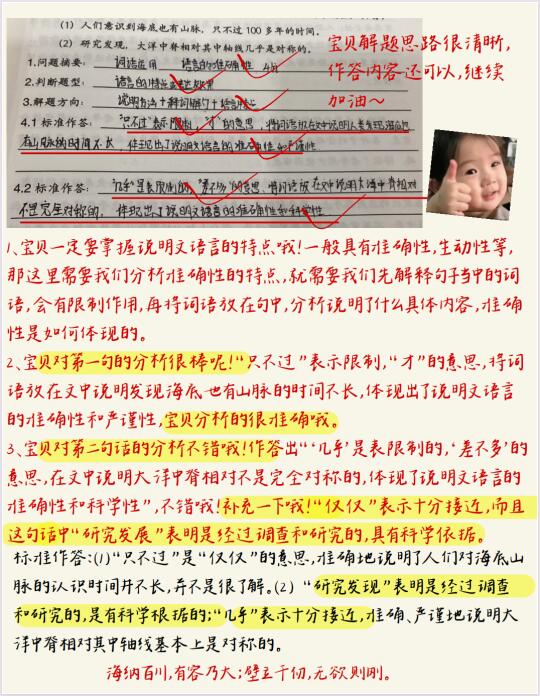 (1) 人们意识到海底也有山脉，只不过100多年的时间。
(2) 研究发现，大洋中脊相对其中轴线几乎是对称的。
1.问题摘要： 词语作用 语言的准确性 4分
2.判断题型： 语言的特点
3.解题方向：
4.1 标准作答： “只不过”表示限制，“才”的意思，将词语放在文中说明人类发现海底也
有山脉的时间不长，体现出了说明文语言的准确性和严谨性
4.2 标准作答： “几乎”是表限制的，“差不多”的意思，将词语放在文中说明大洋中脊相对
不是完全对称的，体现出了说明文语言的准确性和科学性
宝贝解题思路很清晰，
作答内容还可以，继续
加油~
1、宝贝一定要掌握说明文语言的特点哦！一般具有准确性，生动性等，
那这里需要我们分析准确性的特点，就需要我们先解释句子当中的词
语，会有限制作用，再将词语放在句中，分析说明了什么具体内容，准确
性是如何体现的。
2、宝贝对第一句的分析很棒呢！“只不过”表示限制，“才”的意思，将词
语放在文中说明发现海底也有山脉的时间不长，体现出了说明文语言
的准确性和严谨性，宝贝分析的很准确哦。
3、宝贝对第二句话的分析不错哦！作答出“‘几乎’是表限制的，‘差不多’的
意思，在文中说明大洋中脊相对不是完全对称的，体现了说明文语言的
准确性和科学性”，不错哦！补充一下哦！“仅仅”表示十分接近，而且
这句话中“研究发展”表明是经过调查和研究的，具有科学依据。
标准作答：(1)“只不过”是“仅仅”的意思，准确地说明了人们对海底山
脉的认识时间并不长，并不是很了解。(2)“研究发现”表明是经过调查
和研究的，是有科学根据的；“几乎”表示十分接近，准确、严谨地说明大
洋中脊相对其中轴线基本上是对称的。
海纳百川，有容乃大；壁立千仞，无欲则刚。